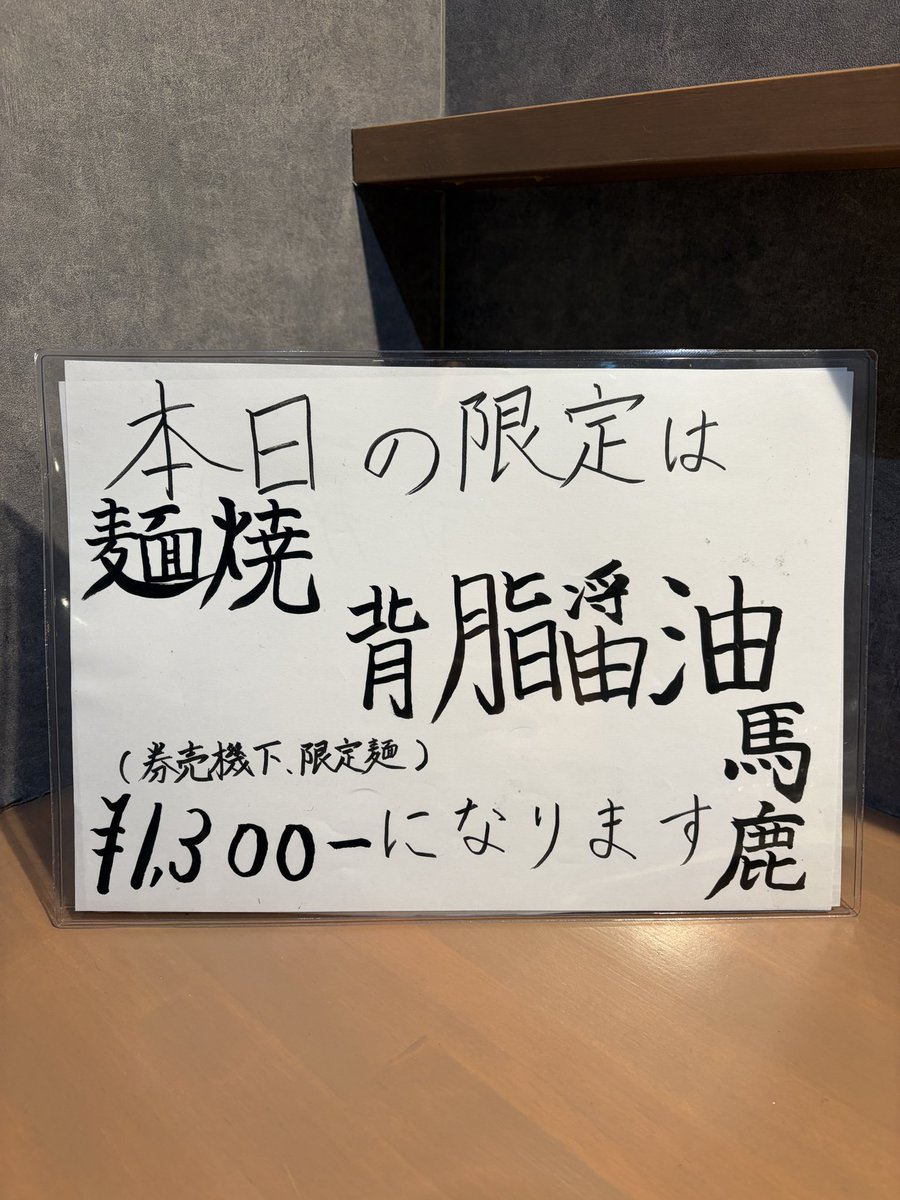 本日の限定は
麺焼
背脂醤油
馬鹿
(券売機下、限定麺)
¥1,300-になります